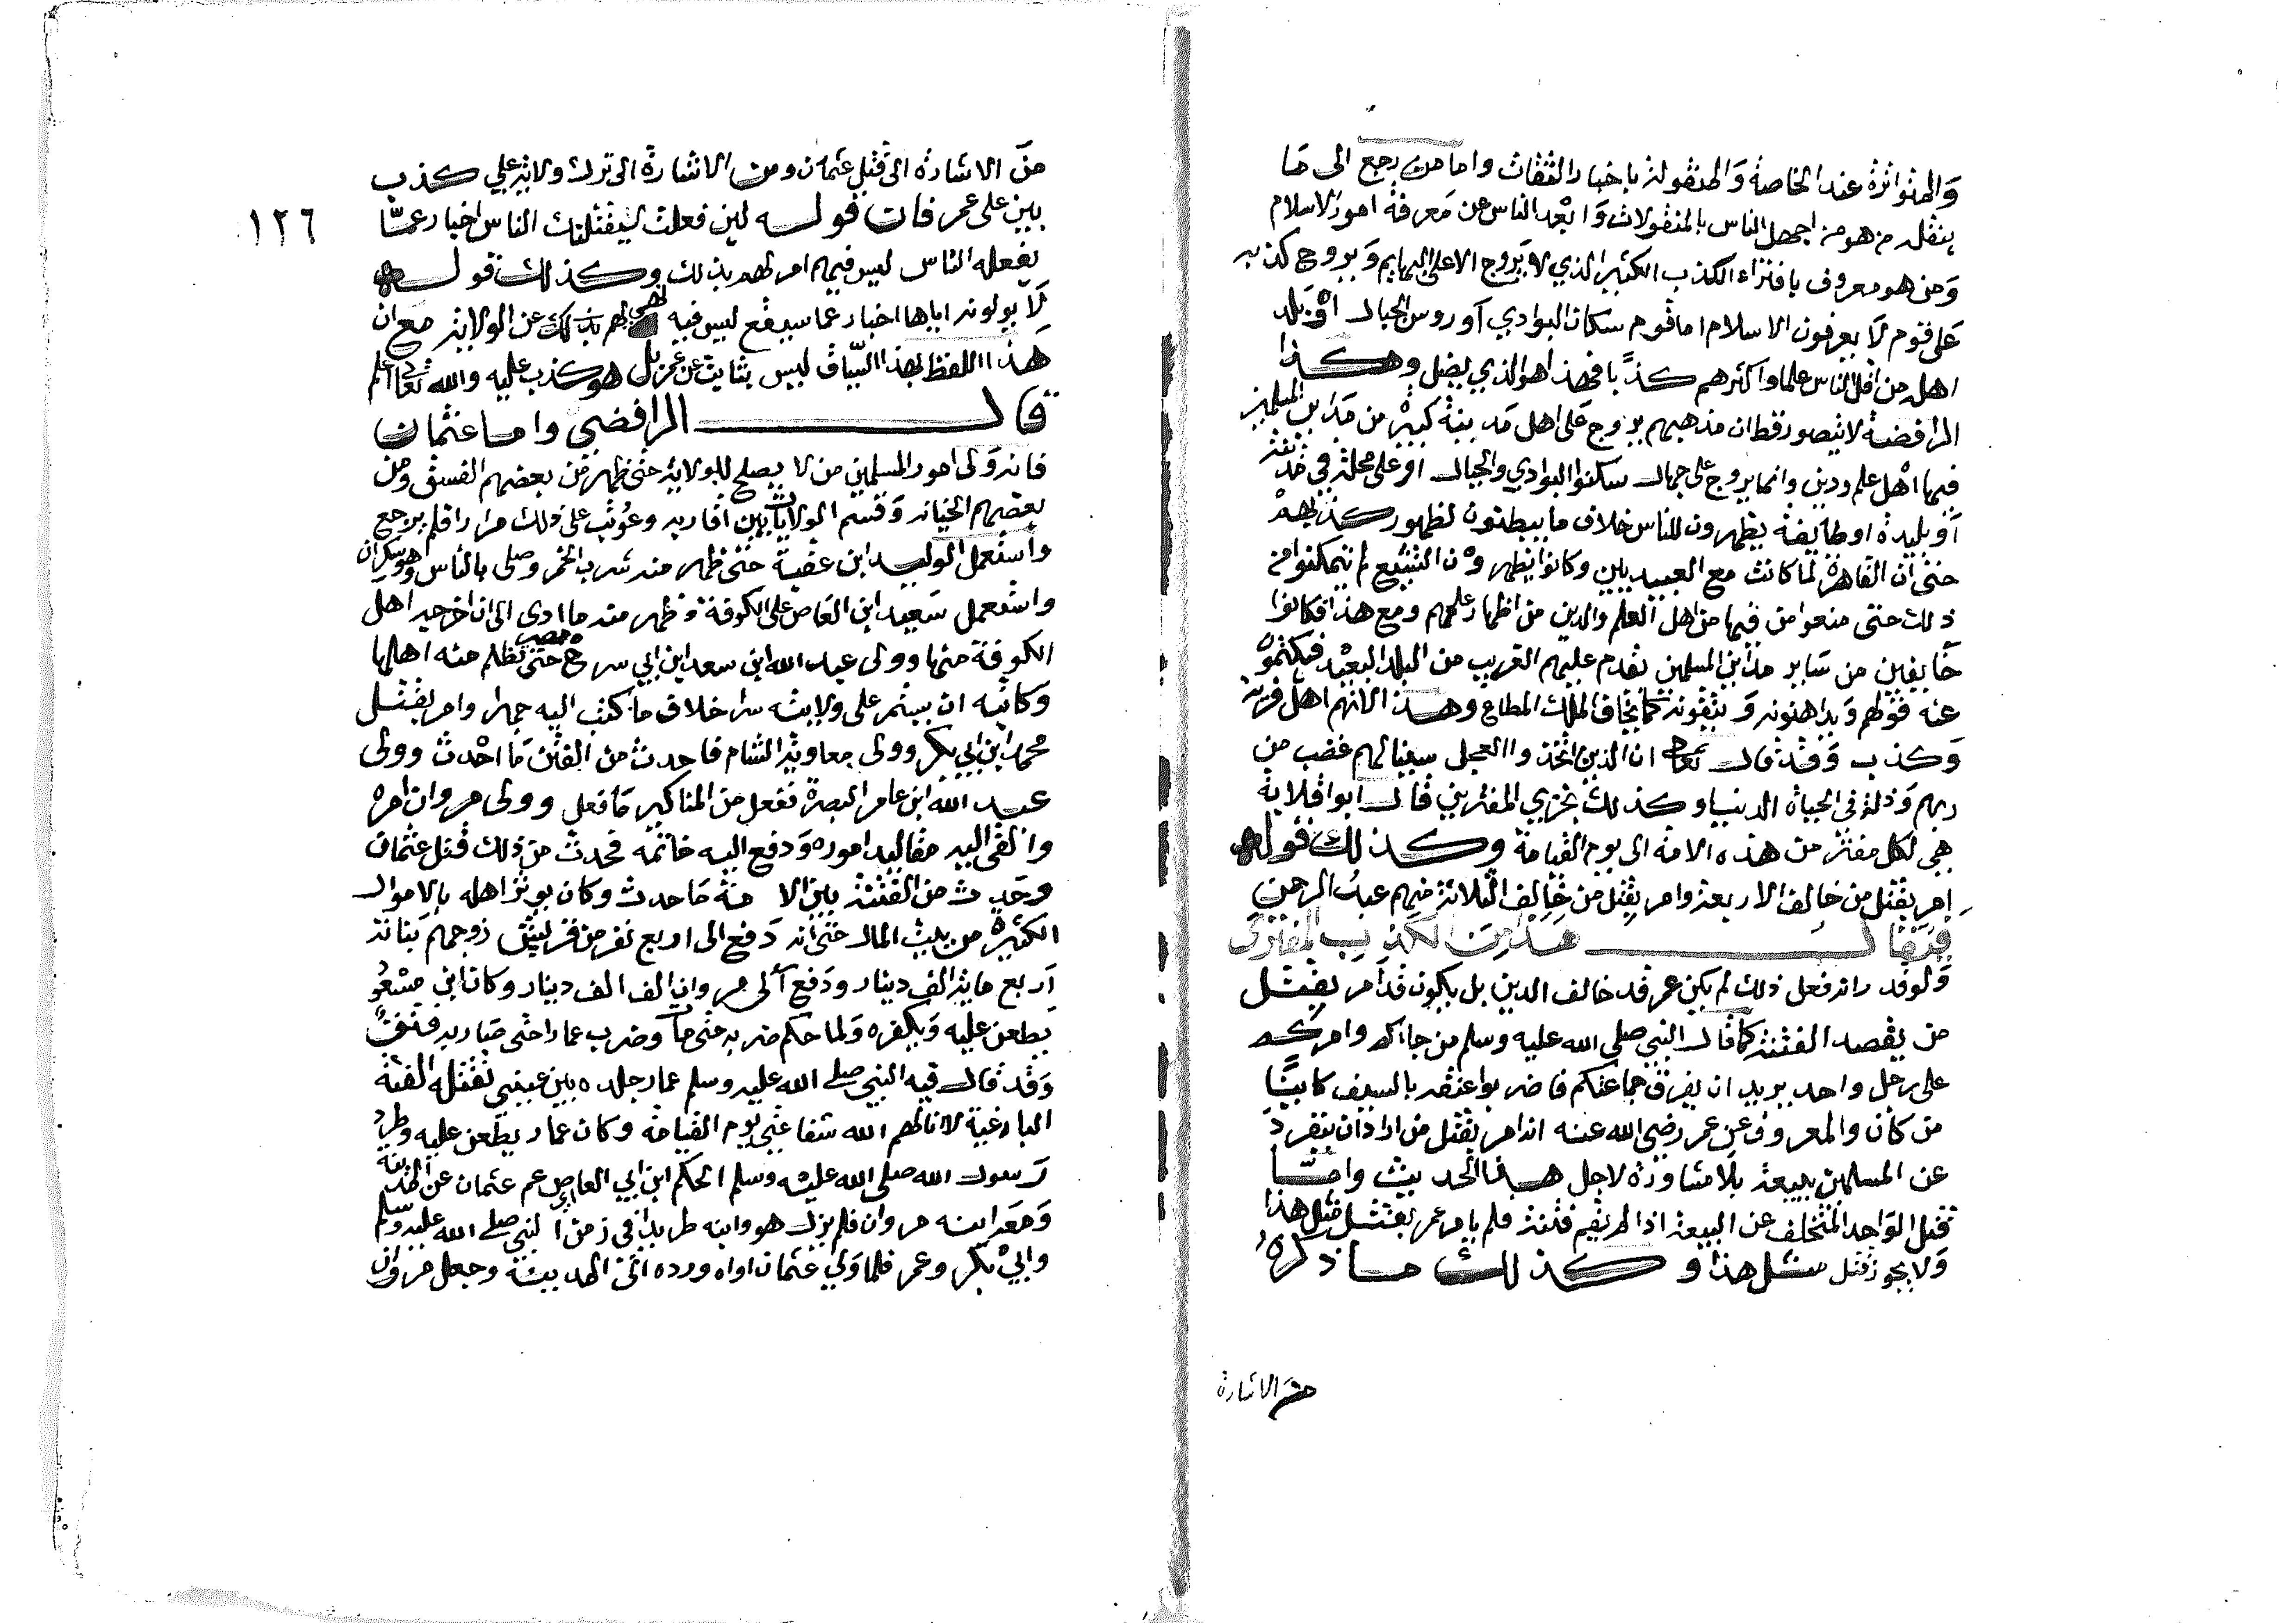 والمتواترة عند الخاصة والمنقولة باخبار الثقات واما من رجع الى ما
ينقله من هو من اجهل الناس بالمنقولات وابعد الناس عن معرفة امور الاسلام
ومن هو معروف بافتراء الكذب الكثير الذي لا يروج الا على البهايم ويروج كذبه
على قوم لا يعرفون الاسلام اما قوم سكان البوادي او روس الجبال او بلد
اهله من اقل الناس علما واكثرهم كذبا فهذا هو الذي يضل وهكذا
الرافضة لا يتصور قط ان مذهبهم يروج على اهل مدينة كبيرة من مداين المسلمين
فيها اهل علم ودين وانما يروج على جهال سكنوا البوادي والجبال او على محلة في مدينة
او بليدة او طايفة يظهرون للناس خلاف ما يبطنون لظهور كذبهم
حتى ان القاهرة لما كانت مع العبيديين وكانوا يظهرون التشيع لم يتمكنوا من
ذلك حتى منعوا من فيها من اهل العلم والدين من اظهار علمهم ومع هذا فكانوا
خايفين من ساير مداين المسلمين يقدم عليهم الغريب من البلد البعيد فيكتموا
عنه قولهم ويداهنونه ويتقونه كما يخاف الملك المطاع وهذا لانهم اهل فرية
وكذب وقد قال تعالى ان الذين اتخذوا العجل سينالهم غضب من
ربهم وذلة في الحياة الدنيا وكذلك نجزي المفترين قال ابو قلابة
هي لكل مفتر من هذه الامة الى يوم القيامة وكذلك قوله
امر بقتل من خالف الاربعة وامر بقتل من خالف الثلاثة منهم عبد الرحمن
فيقال هذا من الكذب المفترى
ولو قدر انه فعل ذلك لم يكن عمر قد خالف الدين بل يكون قد امر بقتل
من يقصد الفتنة كما قال النبي صلى الله عليه وسلم من جاكم وامركم
على رجل واحد يريد ان يفرق جماعتكم فاضربوا عنقه بالسيف كاينا
من كان والمعروف عن عمر رضي الله عنه انه امر بقتل من اراد ان ينفرد
عن المسلمين ببيعة بلا مشاورة لاجل هذا الحديث واما
قتل الواحد المتخلف عن البيعة اذا لم يقم فتنة فلم يامر عمر بقتل مثل هذا
ولا يجوز قتل مثل هذا وكذلك ما ذكره
من الاشارة
١٢٦
من الاشارة الى قتل عثمان ومن الاشارة الى ترك ولاية علي كذب
بين على عمر فان قوله لين فعلت ليقتلنك الناس اخبار عما
يفعله الناس ليس فيه امر لهم بذلك وكذلك قوله
لا يولونه اياها اخبار عما سيقع ليس فيه نهي لهم بذلك عن الولاية مع ان
هذا اللفظ بهذا السياق ليس بثابت عن عمر بل هو كذب عليه والله تعالى اعلم
قال الرافضي واما عثمان
فانه ولى امور المسلمين من لا يصلح للولاية حتى ظهر من بعضهم الفسق ومن
بعضهم الخيانه وقسم الولايات بين اقاربه وعوتب على ذلك مرارا فلم يرجع
واستعمل الوليد ابن عقبة حتى ظهر منه شرب الخمر وصلى بالناس وهو سكران
واستعمل سعيد ابن العاص على الكوفة وظهر منه ما ادى الى ان اخرجه اهل
الكوفة منها وولى عبد الله ابن سعد ابن ابي سرح مصر حتى تظلم منه اهلها
وكاتبه ان يستمر على ولايته سرا خلاف ما كتب اليه جهرا وامر بقتل
محمد ابن ابي بكر وولى معاوية الشام فاحدث من الفتن ما احدث وولى
عبد الله ابن عامر البصرة ففعل من المناكير ما فعل وولى مروان امره
والقى اليه مقاليد اموره ودفع اليه خاتمه فحدث من ذلك قتل عثمان
وحدث من الفتنة بين الامة ما حدث وكان يوثر اهله بالاموال
الكثيرة من بيت المال حتى انه دفع الى اربع نفر من قريش زوجهم بناته
اربع ماية الف دينار ودفع الى مروان الف الف دينار وكان ابن مسعود
يطعن عليه ويكفره ولما حكم ضربه حتى مات وضرب عمارا حتى صار به فتق
وقد قال فيه النبي صلى الله عليه وسلم عمار جلده بين عيني تقتله الفئة
الباغية لا انالهم الله شفاعتي يوم القيامة وكان عمار يطعن عليه وطرد
رسول الله صلى الله عليه وسلم الحكم ابن ابي العاص عم عثمان عن المدينة
ومعه ابنه مروان فلم يزل هو وابنه طريدا في زمن النبي صلى الله عليه وسلم
وابي بكر وعمر فلما ولي عثمان اواه ورده الى المدينة وجعل مروان